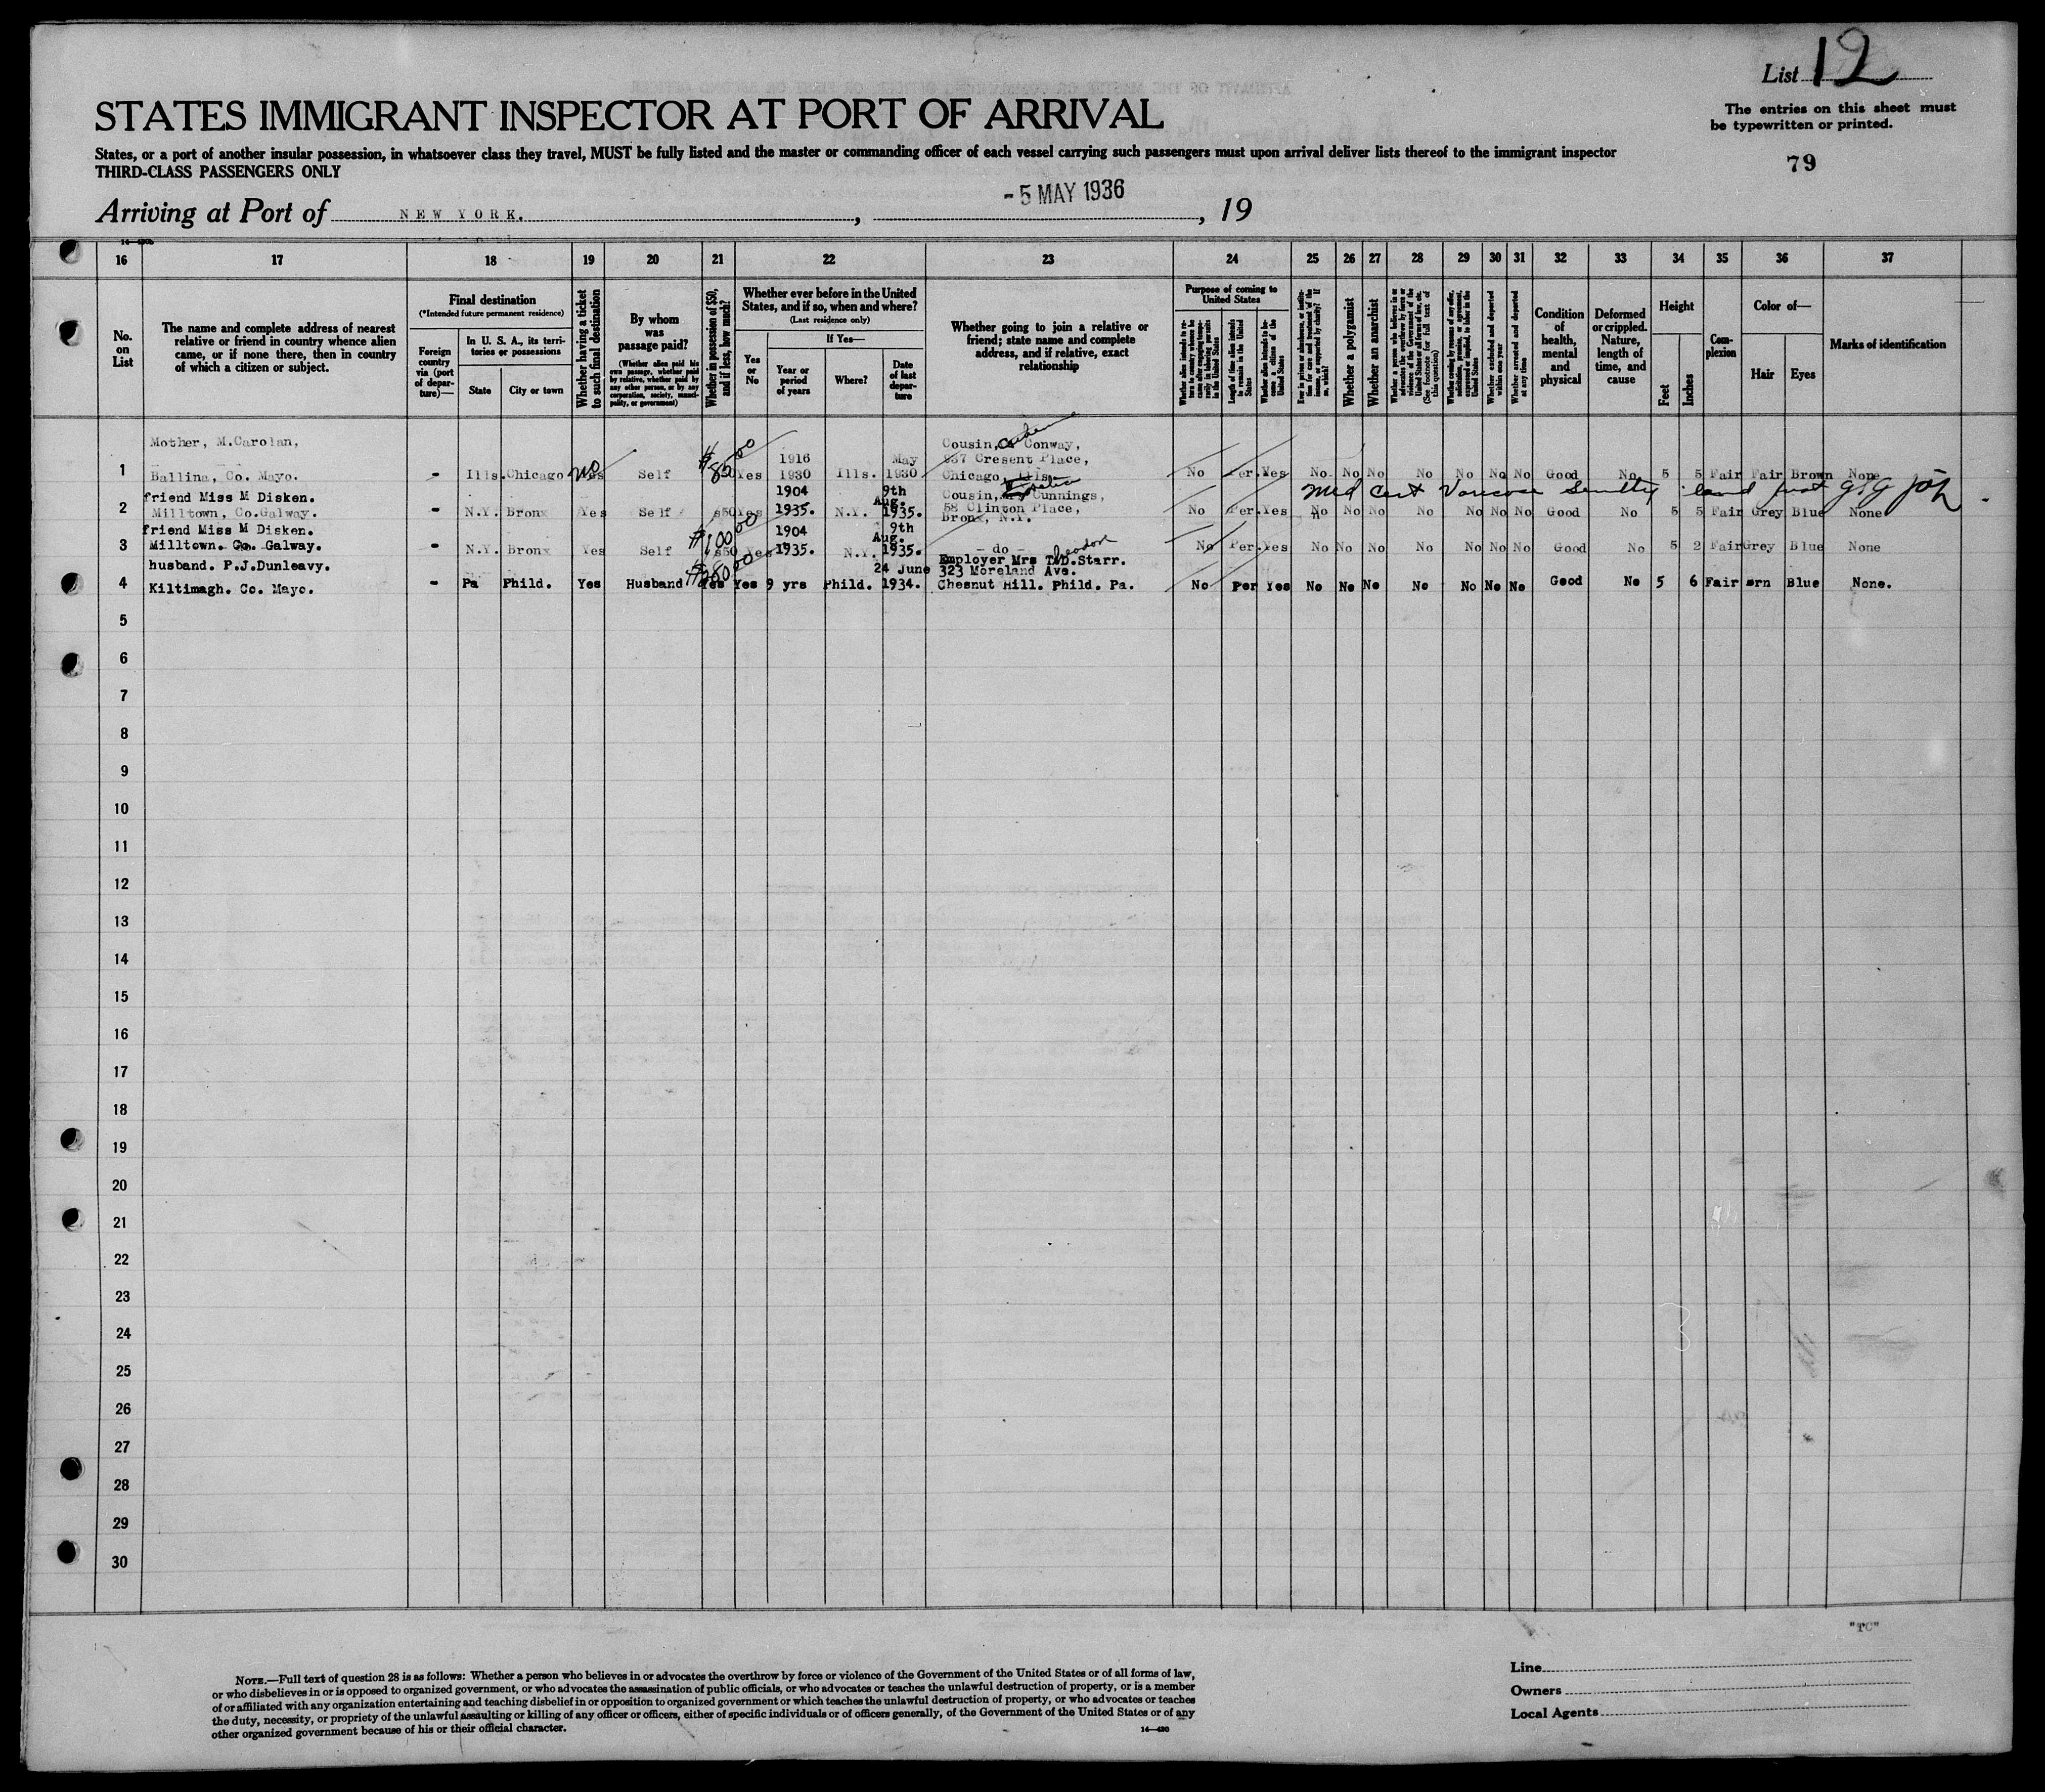 List 12
STATES IMMIGRANT INSPECTOR AT PORT OF ARRIVAL
The entries on this sheet must
be typewritten or printed.
States, or a port of another insular possession, in whatsoever class they travel, MUST be fully listed and the master or commanding officer of each vessel carrying such passengers must upon arrival deliver lists thereof to the immigrant inspector
THIRD-CLASS PASSENGERS ONLY
79
Arriving at Port of NEW YORK. , - 5 MAY 1936 , 19
16 17 18 19 20 21 22 23 24 25 26 27 28 29 30 31 32 33 34 35 36 37
No. on List
The name and complete address of nearest relative or friend in country whence alien came, or if none there, then in country of which a citizen or subject.
Final destination
(*Intended future permanent residence)
Foreign country via (port of departure)—
In U. S. A., its territories or possessions
State
City or town
Whether having a ticket to such final destination
By whom was passage paid?
(Whether alien paid his own passage, whether paid by relative, whether paid by any other person, or by any corporation, society, municipality, or government)
Whether in possession of $50, and if less, how much?
Whether ever before in the United States, and if so, when and where?
(Last residence only)
Yes or No
If Yes—
Year or period of years
Where?
Date of last departure
Whether going to join a relative or friend; state name and complete address, and if relative, exact relationship
Purpose of coming to United States
Length of time alien intends to remain in the United States
Whether alien intends to become a citizen of the United States
Whether a polygamist
Whether an anarchist
(See footnote for full text of this question)
Whether excluded and deported within one year
Whether arrested and deported at any time
Condition of health, mental and physical
Deformed or crippled. Nature, length of time, and cause
Height
Feet
Inches
Complexion
Color of—
Hair
Eyes
Marks of identification
Mother, M.Carolan, 1916 May Cousin, Conway,
937 Cresent Place,
1 Ballina, Co. Mayo. - Ills. Chicago No Yes Self $80 00 Yes 1930 Ills. 1930 Chicago, Ills. No Per. Yes No No No No No No No Good No 5 5 Fair Fair Brown None
friend Miss M Disken. 1904 9th Aug. Cousin, Cunnings, Med Cert
2 Milltown, Co.Galway. - N.Y. Bronx Yes Self $50 Yes 1935. N.Y. 1935. 58 Clinton Place, Bronx, N.Y. No Per. Yes No No No No No No No Good No 5 5 Fair Grey Blue None
friend Miss M Disken. 1904 9th Aug.
3 Milltown. Co. Galway. - N.Y. Bronx Yes Self $100 00 $50 Yes 1935. N.Y. 1935. - do - No Per. Yes No No No No No No No Good No 5 2 Fair Grey Blue None
husband. P.J.Dunleavy. 24 June Employer Mrs T.D.Starr. 323 Moreland Ave.
4 Kiltimagh. Co. Mayo. - Pa Phild. Yes Husband $280 00 Yes Yes 9 yrs Phild. 1934. Chesnut Hill. Phild. Pa. No Per Yes No No No No No No No Good No 5 6 Fair Brn Blue None.
5
6
7
8
9
10
11
12
13
14
15
16
17
18
19
20
21
22
23
24
25
26
27
28
29
30
"TC"
NOTE.—Full text of question 28 is as follows: Whether a person who believes in or advocates the overthrow by force or violence of the Government of the United States or of all forms of law,
or who disbelieves in or is opposed to organized government, or who advocates the assassination of public officials, or who advocates or teaches the unlawful destruction of property, or is a member
of or affiliated with any organization entertaining and teaching disbelief in or opposition to organized government or which teaches the unlawful destruction of property, or who advocates or teaches
the duty, necessity, or propriety of the unlawful assaulting or killing of any officer or officers, either of specific individuals or of officers generally, of the Government of the United States or of any
other organized government because of his or their official character.
14—430
Line
Owners
Local Agents